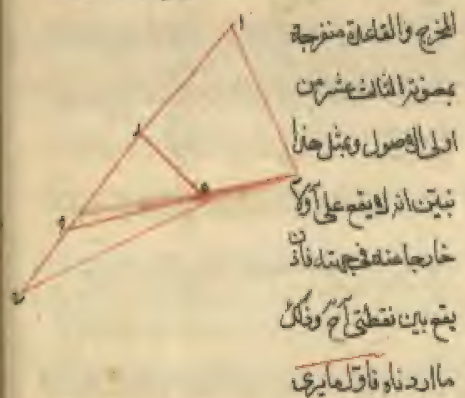 المخرج والقاعدة منفرجة
بصورة الثالث عشر من
اولى الاصول وبمثل هذا
نبين انه لا يقع على آ ولا
خارجا عنه في جهته فاذن
يقع بين نقطتى آ ح وذلك
ما اردناه فاقول ما يرى